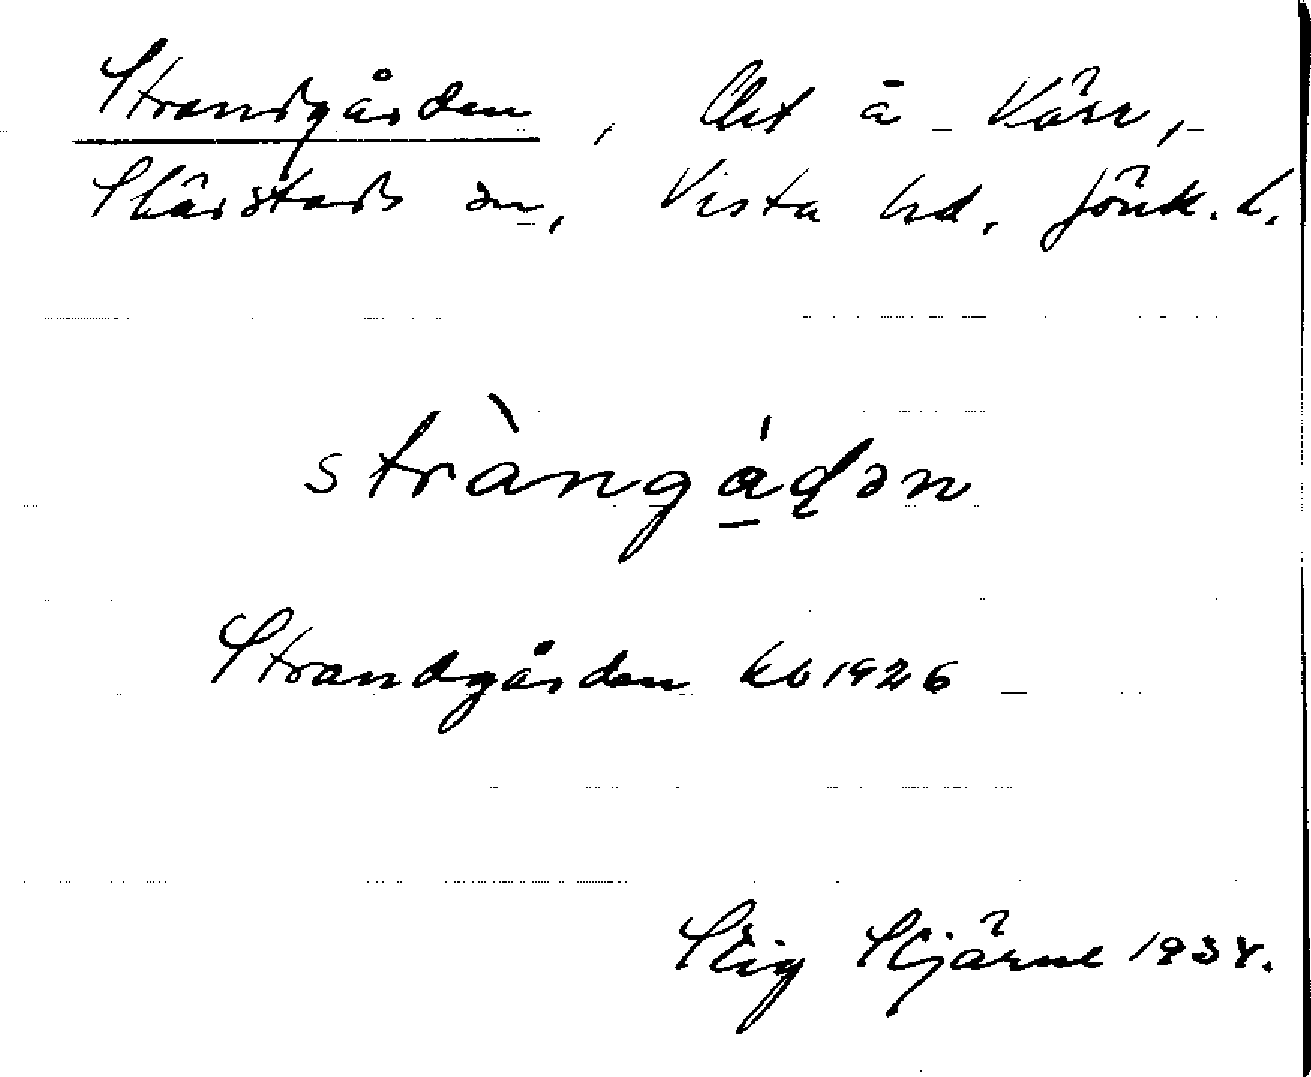 Strandgården, Avs å Kärr,
Skärstads sn, Vista hd. Jönk. l.
stràngádən
Strandgården kb 1926
Stig Stjärne 1934.